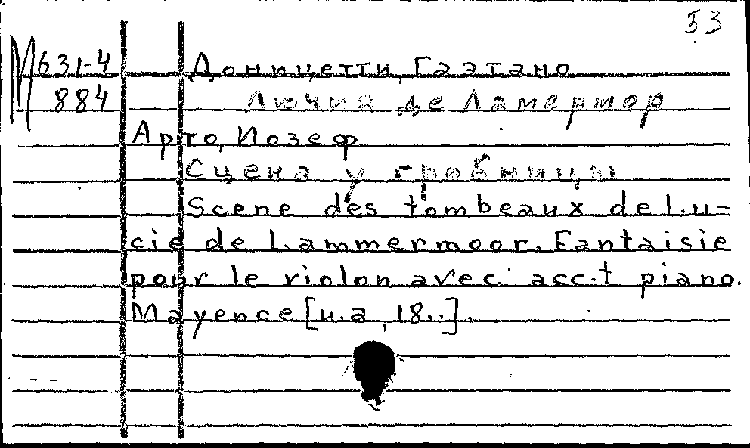 53
М 631-4 Доницетти, Гаэтано
884 Лючия де Ламермор
Арто, Иозеф
Сцена у гробницы
Scene des tombeaux de Lu-
cie de Lammermoor. Fantaisie
pour le violon avec acc.t piano.
Mayence [и.а, 18..].